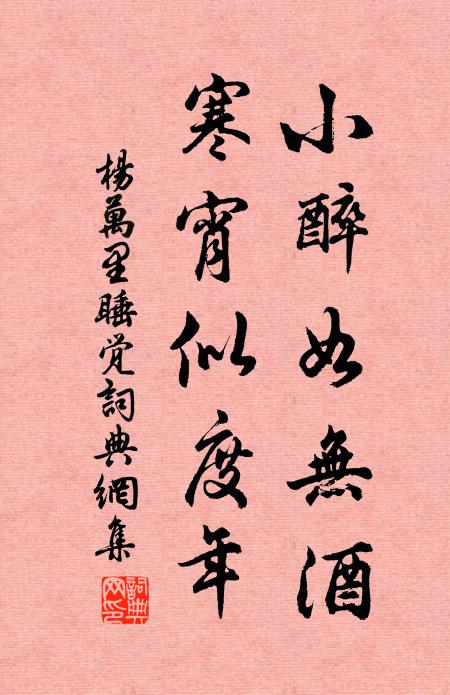 小醉如無酒
寒宵似度年
楊萬里睡觉詞典網集
詞典網印